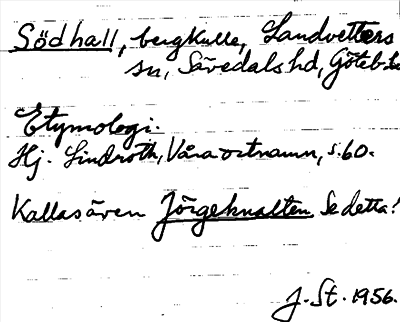 Södhall, bergkulle, Landvetters
sn, Sävedals hd, Göteb. L.
Etymologi.
Hj. Lindroth, Våra ortnamn, s. 60.
Kallas även Jörgeknalten. Se detta!
J. St. 1956.